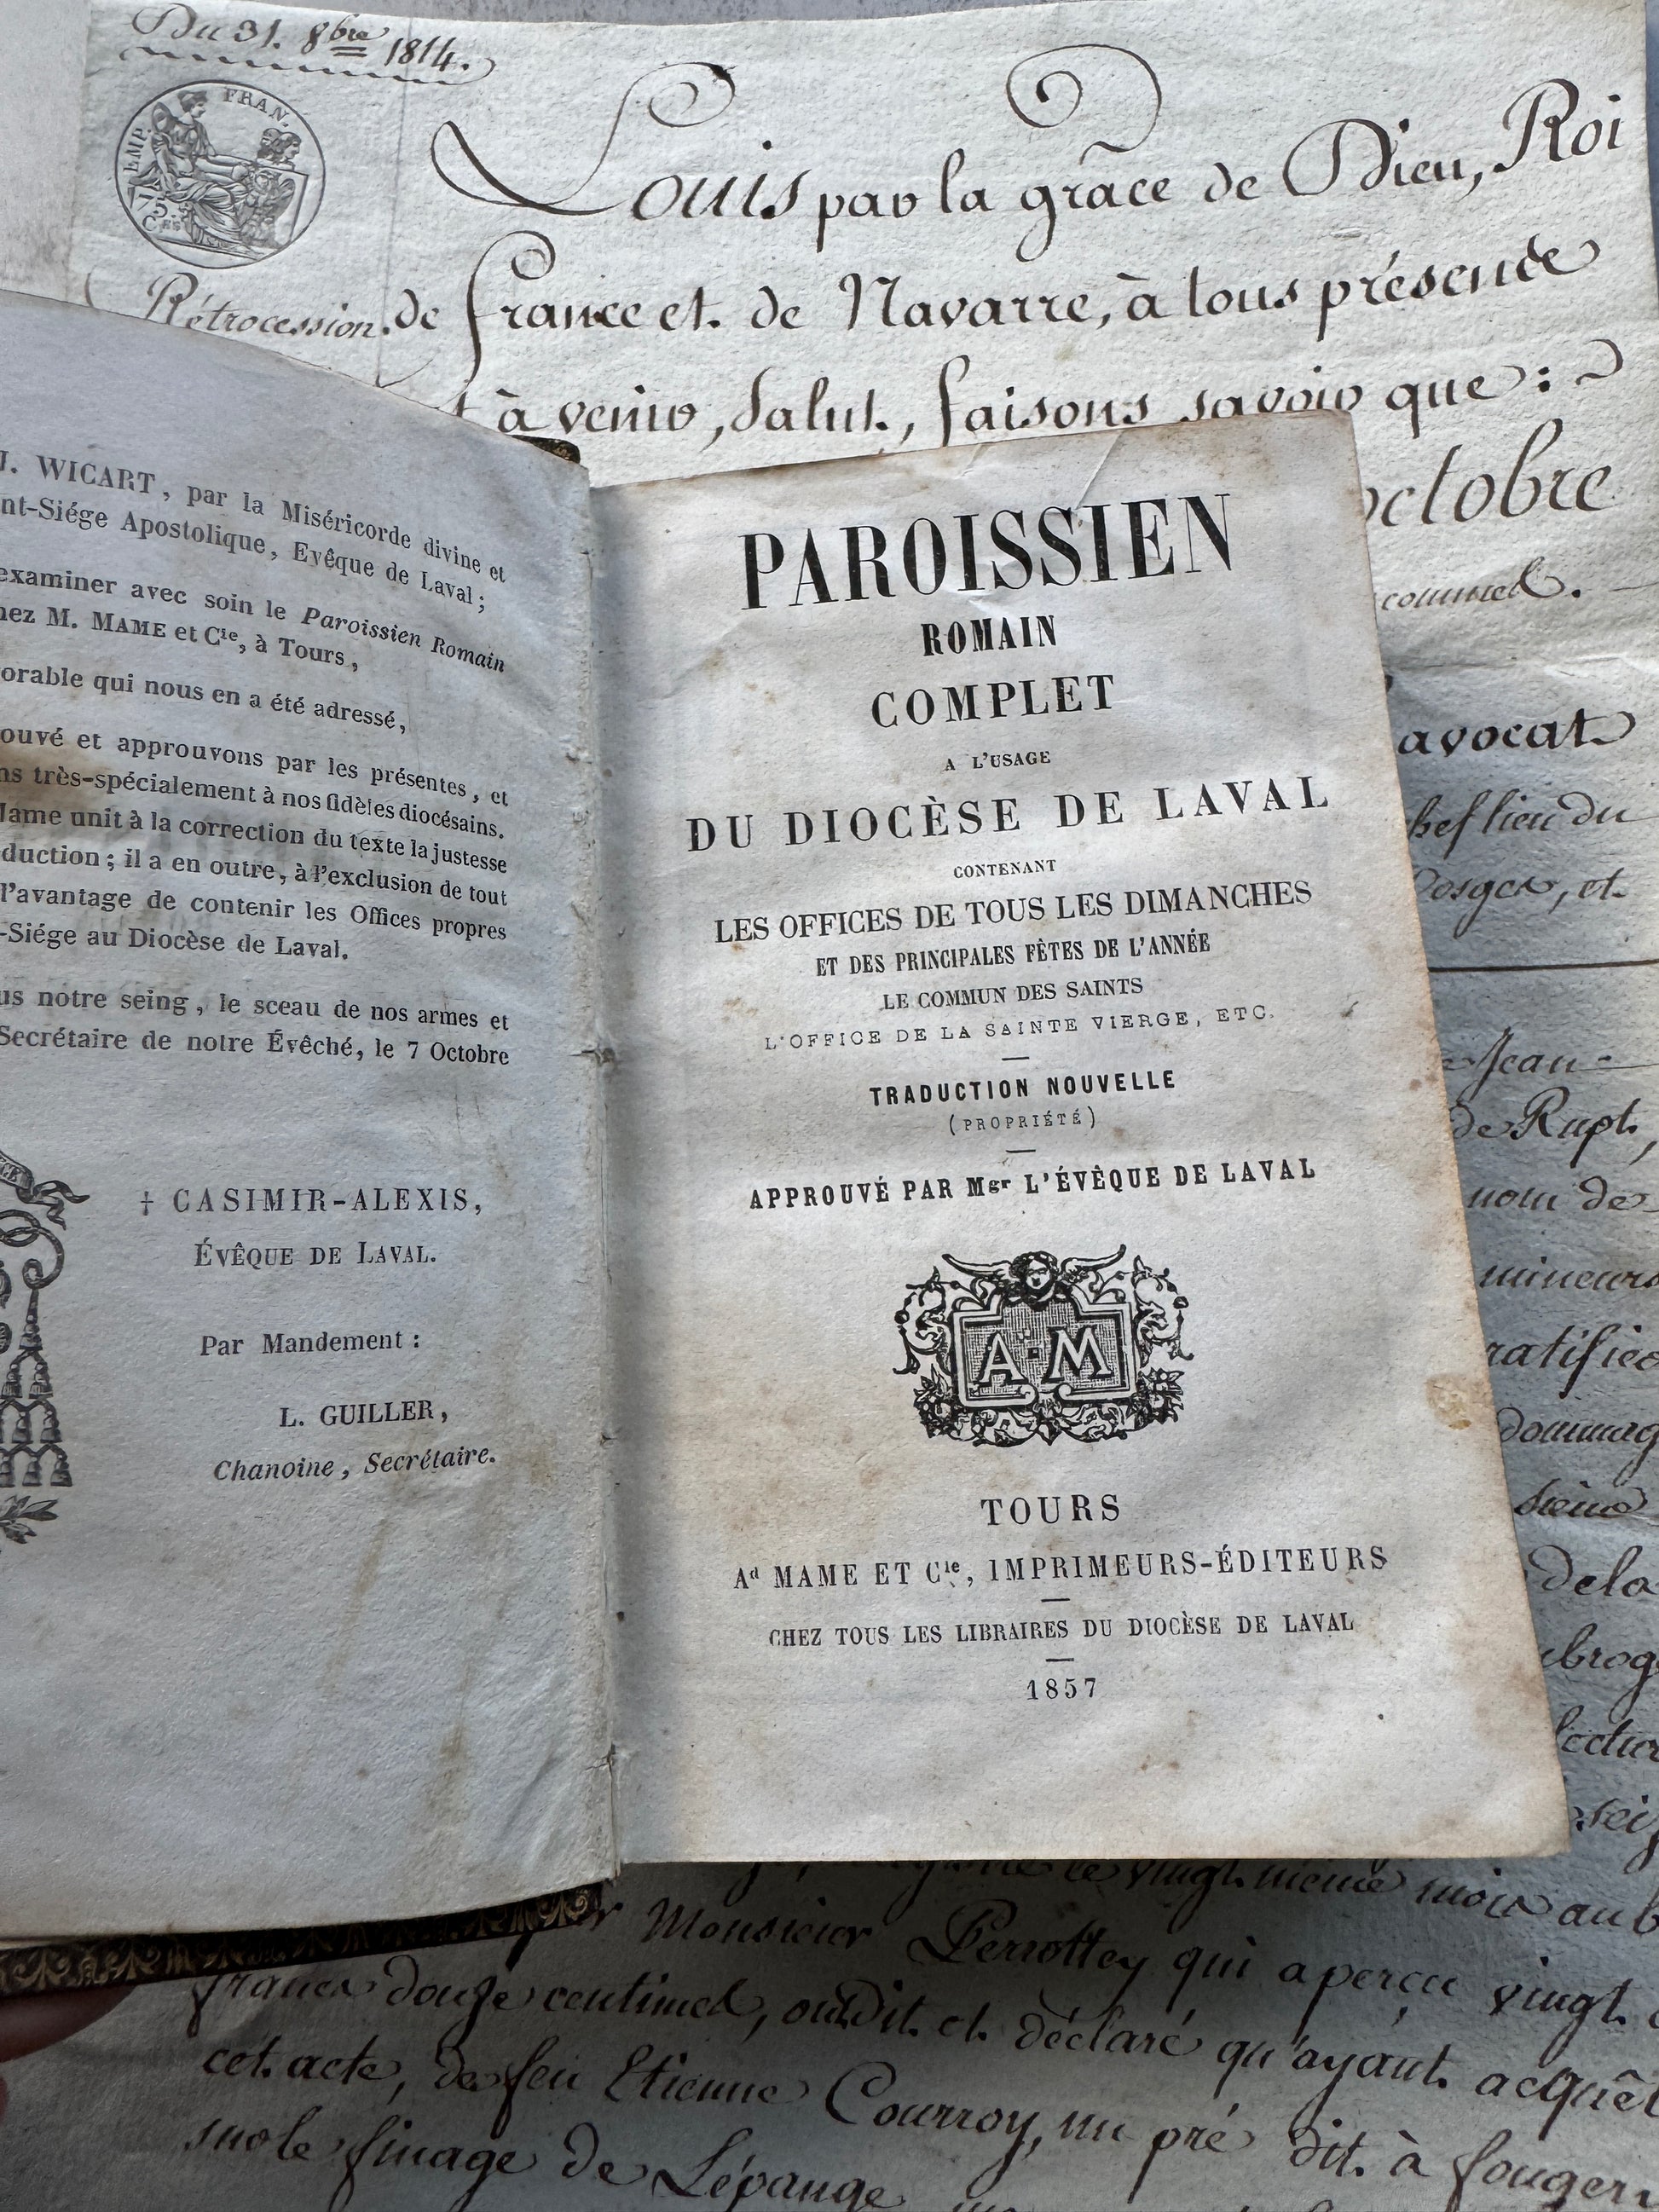 Du 31. 8bre 1814.
EMP. FRAN.
75.
Ces
Louis par la grace de Dieu, Roi
Rétrocession.
de france et de Navarre, à tous présents
à venir, Salut, faisons savoir que :
octobre
avocat
chef lieu du
Vosges, et
Jean
de Rupt,
nom de
mineurs
J. WICART, par la Miséricorde divine et
nt-Siége Apostolique, Evêque de Laval;
examiner avec soin le Paroissien Romain
hez M. MAME et Cie, à Tours,
orable qui nous en a été adressé,
ouvé et approuvons par les présentes, et
ns très-spécialement à nos fidèles diocésains.
Mame unit à la correction du texte la justesse
duction; il a en outre, à l'exclusion de tout
l'avantage de contenir les Offices propres
-Siége au Diocèse de Laval.
us notre seing, le sceau de nos armes et
Secrétaire de notre Évêché, le 7 Octobre
† CASIMIR-ALEXIS,
ÉVÊQUE DE LAVAL.
Par Mandement :
L. GUILLER,
Chanoine, Secrétaire.
PAROISSIEN
ROMAIN
COMPLET
A L'USAGE
DU DIOCÈSE DE LAVAL
CONTENANT
LES OFFICES DE TOUS LES DIMANCHES
ET DES PRINCIPALES FÊTES DE L'ANNÉE
LE COMMUN DES SAINTS
L'OFFICE DE LA SAINTE VIERGE, ETC.
TRADUCTION NOUVELLE
(PROPRIÉTÉ)
APPROUVÉ PAR Mgr L'ÉVÊQUE DE LAVAL
A M
TOURS
Ad MAME ET Cie, IMPRIMEURS-ÉDITEURS
CHEZ TOUS LES LIBRAIRES DU DIOCÈSE DE LAVAL
1857
le vingt meme mois au
Monsieur Perrottey qui a perçu vingt
francs douze centimes, ont dit et déclaré qu'ayant acquêt
cet acte, de feu Etienne Courroy, un pré dit à fouger
sur le finage de Lépange